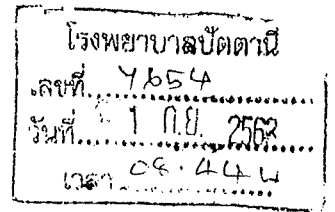 โรงพยาบาลปัตตานี
เลขที่ 7654
วันที่ 1 ก.ย. 2563
เวลา 08.44 น